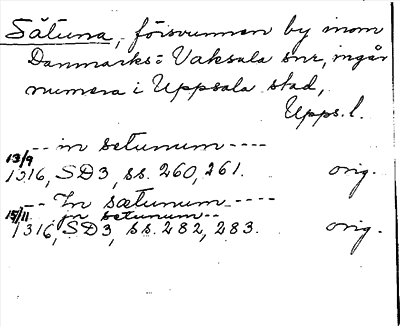 Sätuna, försvunnen by inom
Danmarks= Vaksala snr, ingår
numera i Uppsala stad,
Upps. l.
-- in setunum ----
13/9
1316, SD3, ss. 260, 261. orig.
--- In sætunum ----
15/11 in setunum --
1316, SD3, ss. 282, 283. orig.